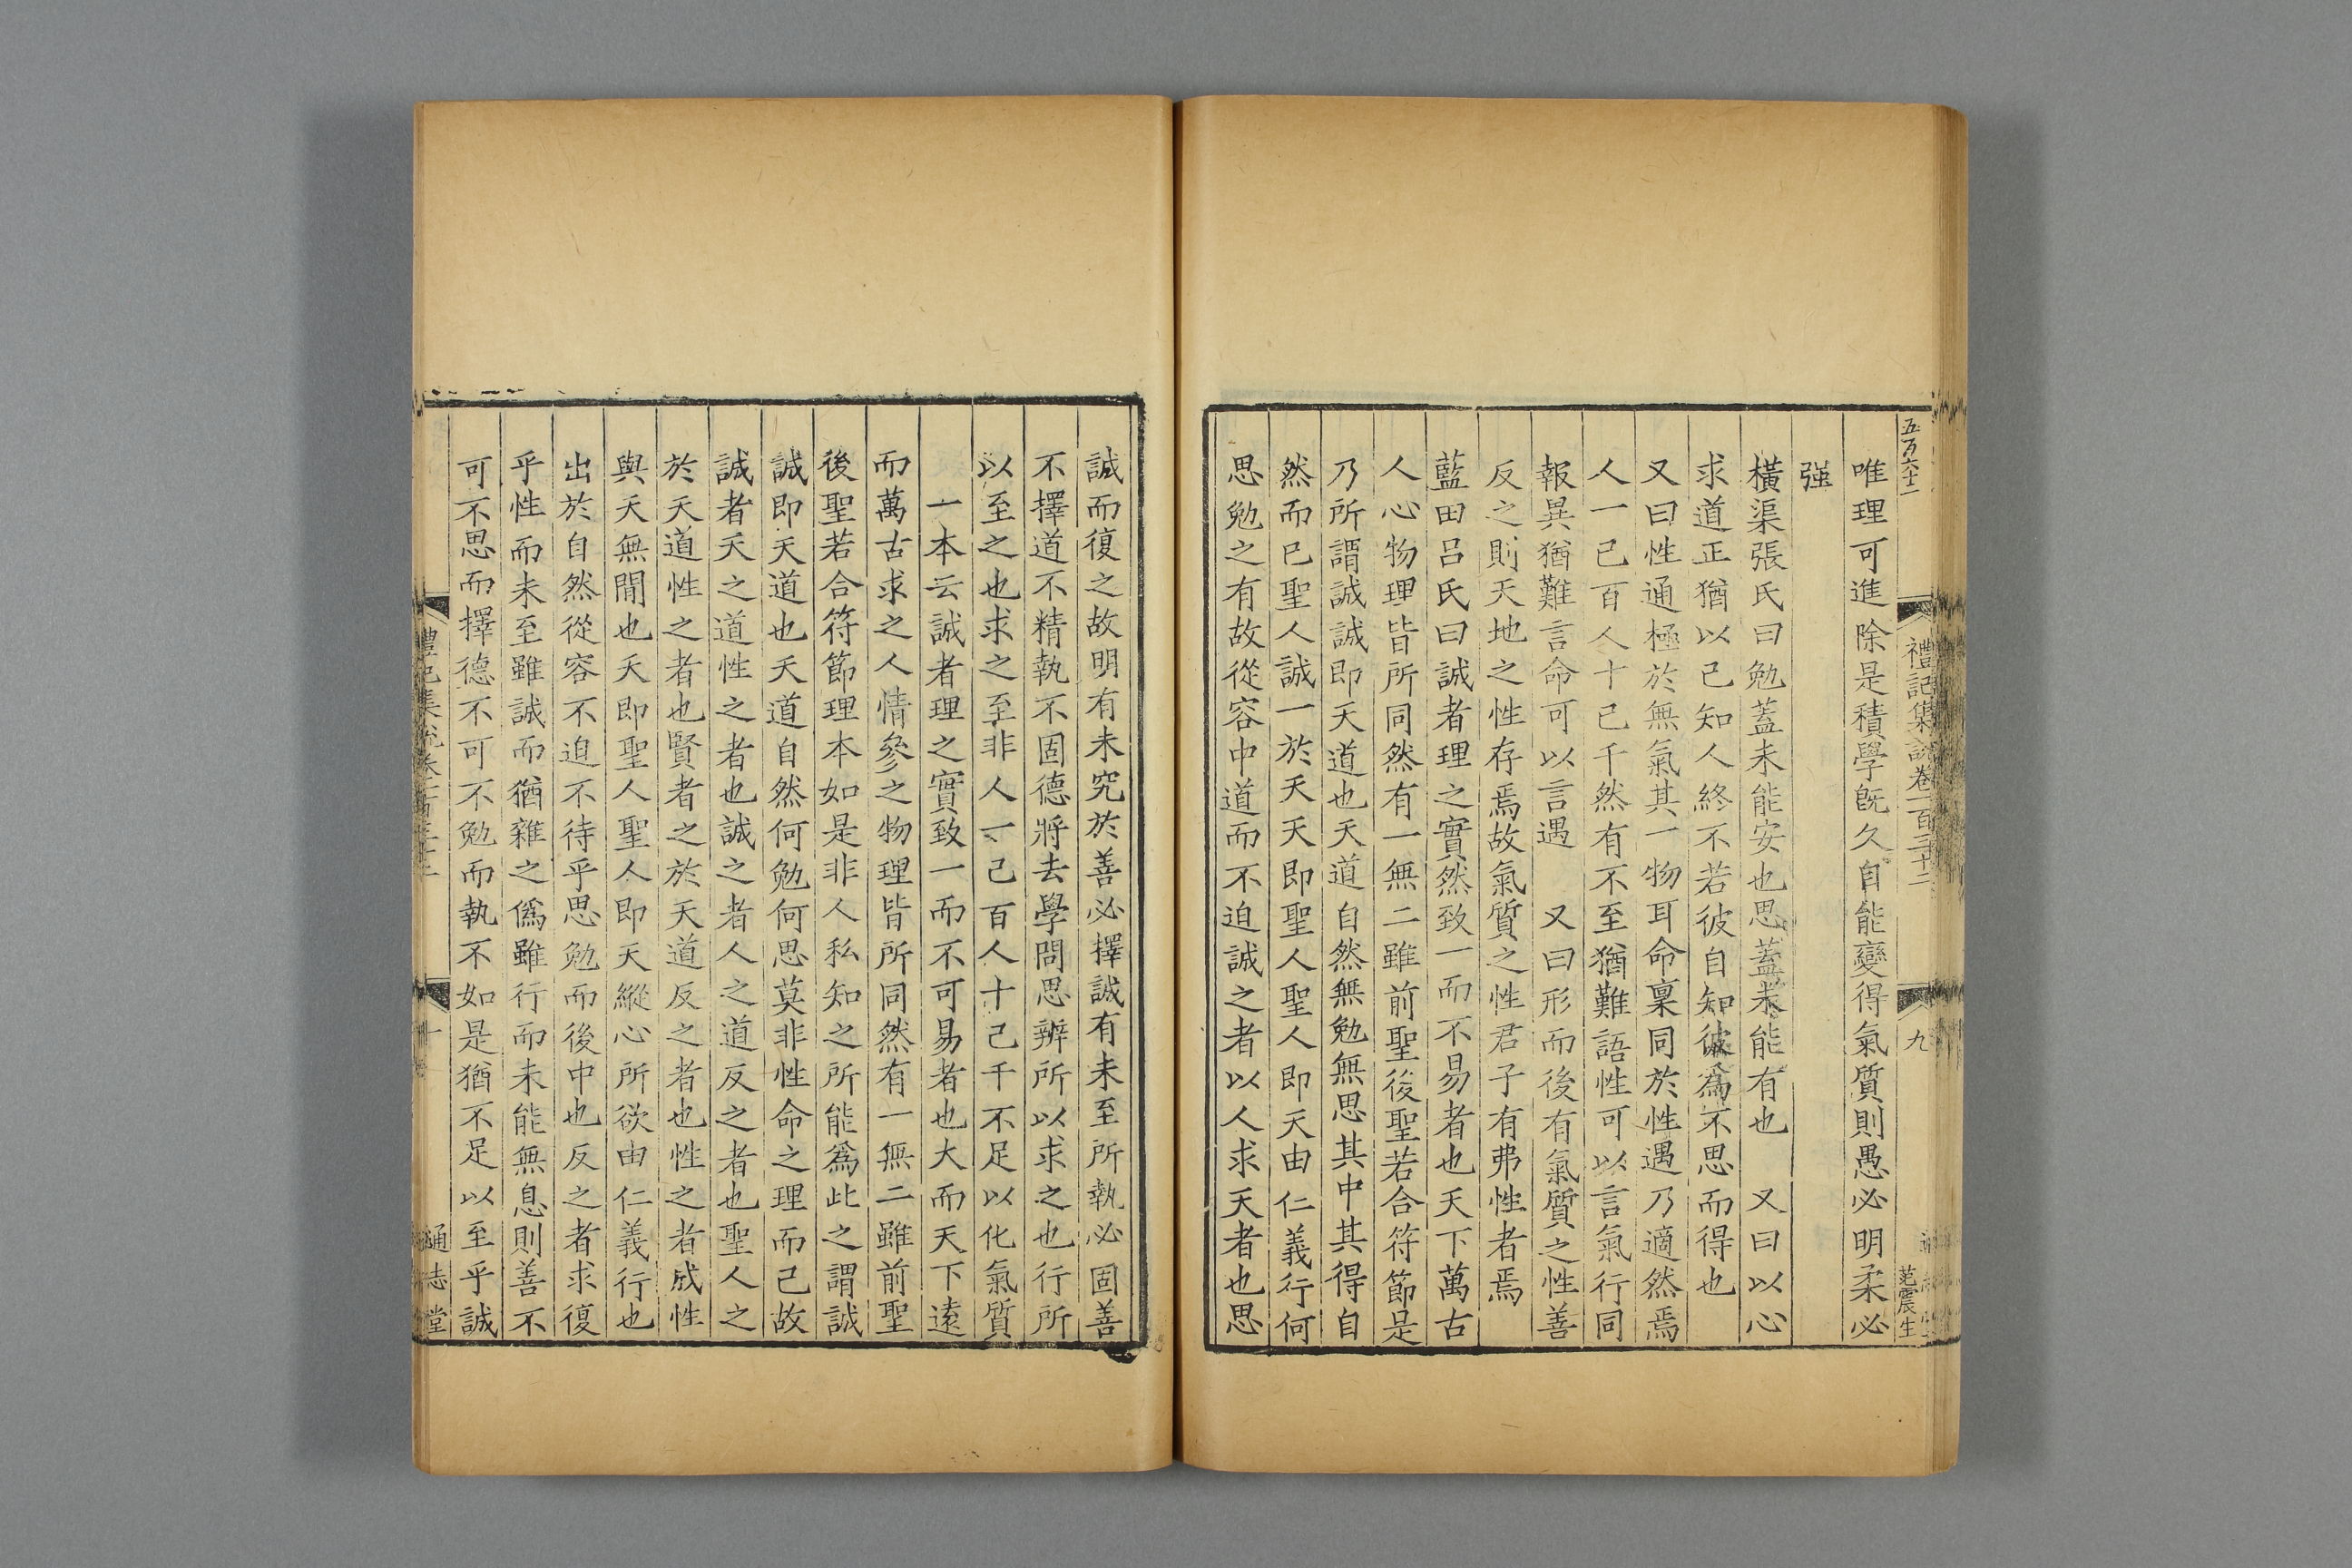 五万六十二
禮記集說卷一百三十二
九
范震生
唯理可進除是積學旣久自能變得氣質則愚必明柔必
强
橫渠張氏曰勉蓋未能安也思蓋未能有也　又曰以心
求道正猶以己知人終不若彼自知彼爲不思而得也
又曰性通極於無氣其一物耳命稟同於性遇乃適然焉
人一己百人十己千然有不至猶難語性可以言氣行同
報異猶難言命可以言遇　又曰形而後有氣質之性善
反之則天地之性存焉故氣質之性君子有弗性者焉
藍田呂氏曰誠者理之實然致一而不易者也天下萬古
人心物理皆所同然有一無二雖前聖後聖若合符節是
乃所謂誠誠即天道也天道自然無勉無思其中其得自
然而已聖人誠一於天天即聖人聖人即天由仁義行何
思勉之有故從容中道而不迫誠之者以人求天者也思
誠而復之故明有未究於善必擇誠有未至所執必固善
不擇道不精執不固德將去學問思辨所以求之也行所
以至之也求之至非人一己百人十己千不足以化氣質
一本云誠者理之實致一而不可易者也大而天下遠
而萬古求之人情參之物理皆所同然有一無二雖前聖
後聖若合符節理本如是非人私知之所能爲此之謂誠
誠即天道也天道自然何勉何思莫非性命之理而已故
誠者天之道性之者也誠之者人之道反之者也聖人之
於天道性之者也賢者之於天道反之者也性之者成性
與天無間也天即聖人聖人即天縱心所欲由仁義行也
出於自然從容不迫不待乎思勉而後中也反之者求復
乎性而未至雖誠而猶雜之僞雖行而未能無息則善不
可不思而擇德不可不勉而執不如是猶不足以至乎誠
十
通志堂